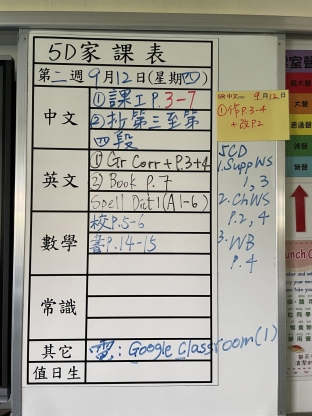 5D家課表
第二週9月12日(星期四)
中文
①課工P.3-7
②析第三至第四段
英文
① Gr Corr + P.3+4
2) Book P.7
Spell Dict 1 (A1-6)
數學
校P.5-6
書P.14-15
常識
其它
電: Google Classroom(1)
值日生
5B 中文 9月12日
①作P.3-4
+改P.2
5CD
1. Supp WS
1, 3
2. Ch WS
P.2, 4
3. WB
P.4